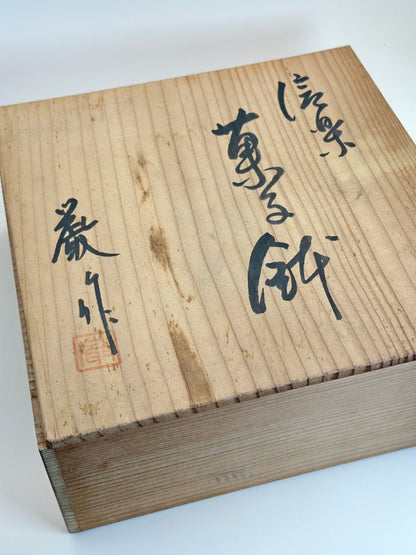 信楽
菓子鉢
巌作